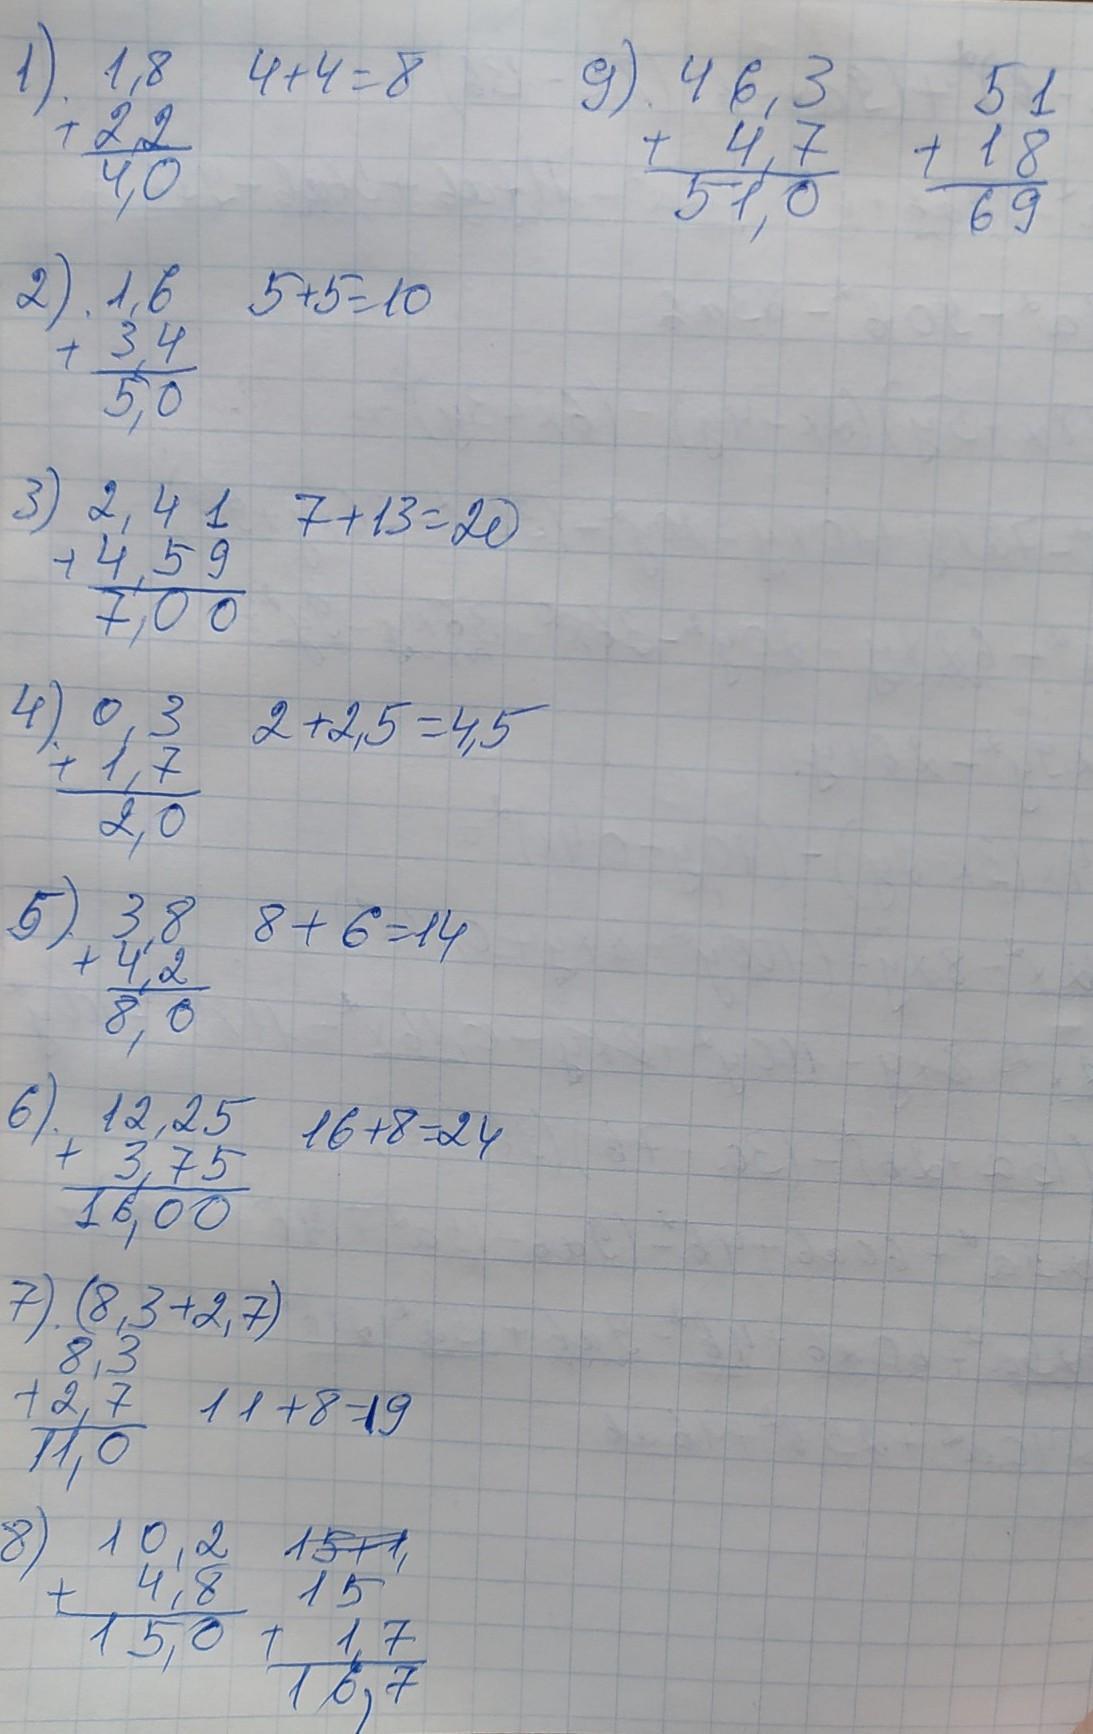 1). 1,8   4+4=8
+ 2,2
4,0
2). 1,6   5+5=10
+ 3,4
5,0
3) 2,41   7+13=20
+ 4,59
7,00
4). 0,3   2+2,5=4,5
+ 1,7
2,0
5). 3,8   8+6=14
+ 4,2
8,0
6). 12,25   16+8=24
+ 3,75
16,00
7). (8,3+2,7)
8,3
+ 2,7   11+8=19
11,0
8) 10,2   15+1,
+ 4,8   15
15,0   + 1,7
16,7
9). 46,3   51
+ 4,7   + 18
51,0   69